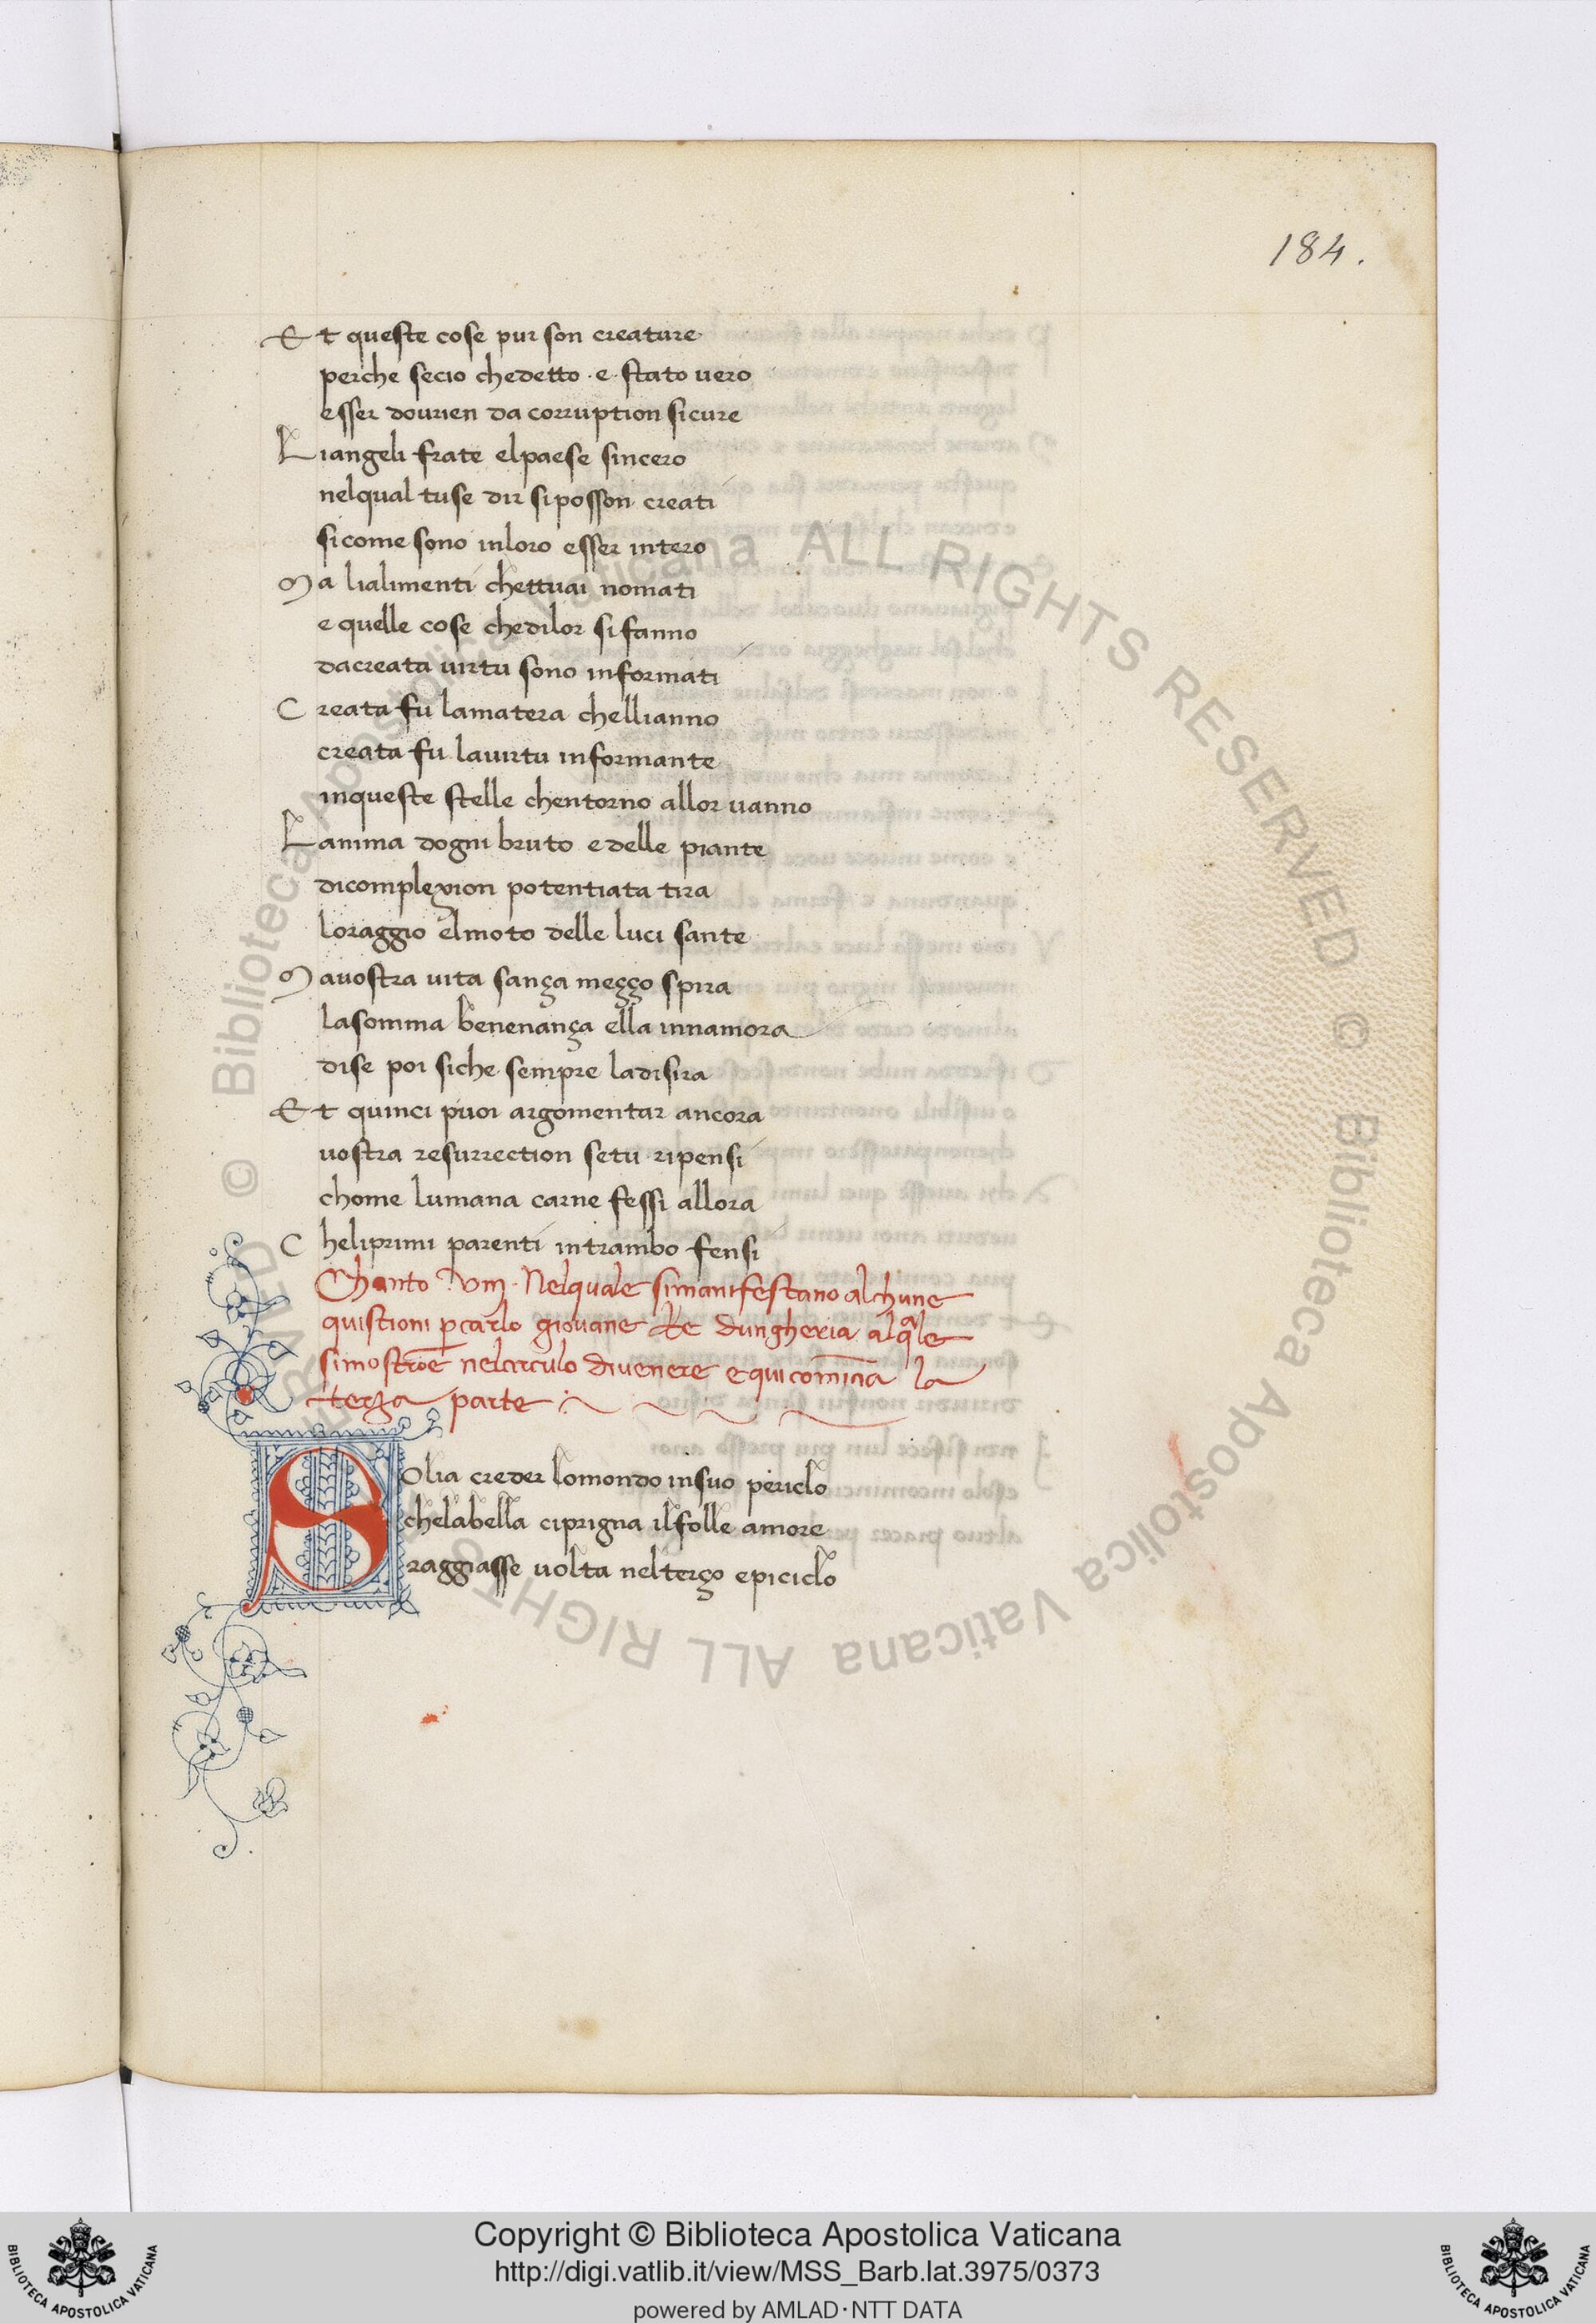 184.
Et queste cose pur son creature
perche secio chedetto · e · stato uero
esser dourien da corruption sicure
Liangeli frate elpaese sincero
nelqual tuse dir siposson creati
sicome sono inloro esser intero
Ma lialimenti chettuai nomati
e quelle cose chedilor sifanno
dacreata uirtu sono informati
Creata fu lamatera chellianno
creata fu lauirtu informante
inqueste stelle chentorno allor uanno
Lanima dogni bruto e delle piante
dicomplexion potentiata tira
loraggio elmoto delle luci sante
Mauostra uita sança meçço spira
lasomma benenança ella innamora
dise poi siche sempre ladisira
Et quinci puoi argomentar ancora
uostra resurrection setu ripensi
chome lumana carne fessi allora
Cheliprimi parenti intrambo fensi
Chanto .viij. Nelquale simanifestano alchune
quistioni p carlo giouane Re dungheria alqale
simostroe nelcirculo diuenere e qui comincia la
terza parte
Solia creder lomondo insuo periclo
chelabella ciprigna ilfolle amore
raggiasse uolta nelterço epiciclo
© Biblioteca Apostolica Vaticana ALL RIGHTS RESERVED © Biblioteca Apostolica Vaticana ALL RIGHTS RESERVED
Copyright © Biblioteca Apostolica Vaticana
http://digi.vatlib.it/view/MSS_Barb.lat.3975/0373
powered by AMLAD·NTT DATA
BIBLIOTECA APOSTOLICA VATICANA
BIBLIOTECA APOSTOLICA VATICANA